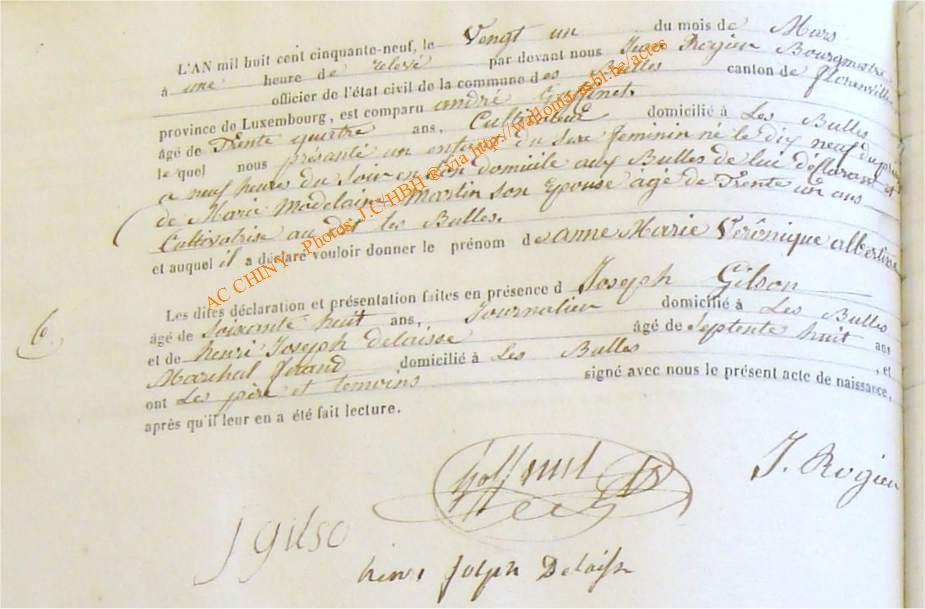 L'AN mil huit cent cinquante-neuf, le Vengt un du mois de Mars
à une heure de relevé par devant nous Jean Rogien Bourgmestre
officier de l'état civil de la commune des Bulles canton de florenville
province de Luxembourg, est comparu andré Goffinet
âgé de Trente quatre ans, Cultivateur domicilié à Les Bulles
le quel nous présanté un enfant du Sexe feminin né le Dix neuf du
a neuf heures du Soir en domicile aux Bulles de lui déclarant et
de Marie Madelaine Martin son Epouse âgé de Trente un ans
Cultivatrise au dit les Bulles.
et auquel il a déclaré vouloir donner le prénom de anne Marie Verônique albertine
Les dites déclaration et présentation faites en présence d Joseph Gilson
âgé de Soixante huit ans, Journalier domicilié à Les Bulles
6.
et de henri Joseph Delaisse âgé de Septente huit ans
Marehal ferand domicilié à Les Bulles , et
ont Les père et temoins signé avec nous le présent acte de naissance,
après qu'il leur en a été fait lecture.
J. Rogien
J Gilso
henri Joseph Delaisse
AC CHINY - Photos J.C/HBH © via http://wallonia.asbl.be/actes